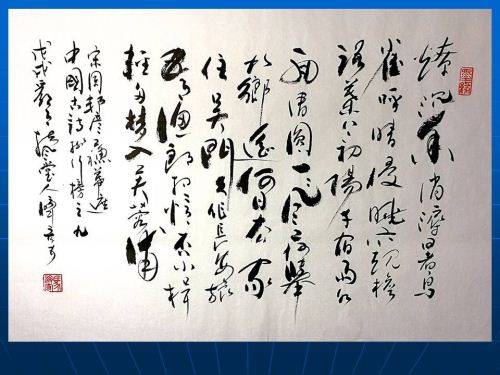 燎沉香消溽暑鳥
雀呼晴侵曉窺檐
語葉上初陽乾宿雨水
面清圓一一風荷舉
故鄉遙何日去家
住吳門久作長安旅
五月漁郎相憶否小楫
輕舟夢入芙蓉浦
宋周邦彥蘇幕遮
中國古詩詞排行榜之九
戊戌